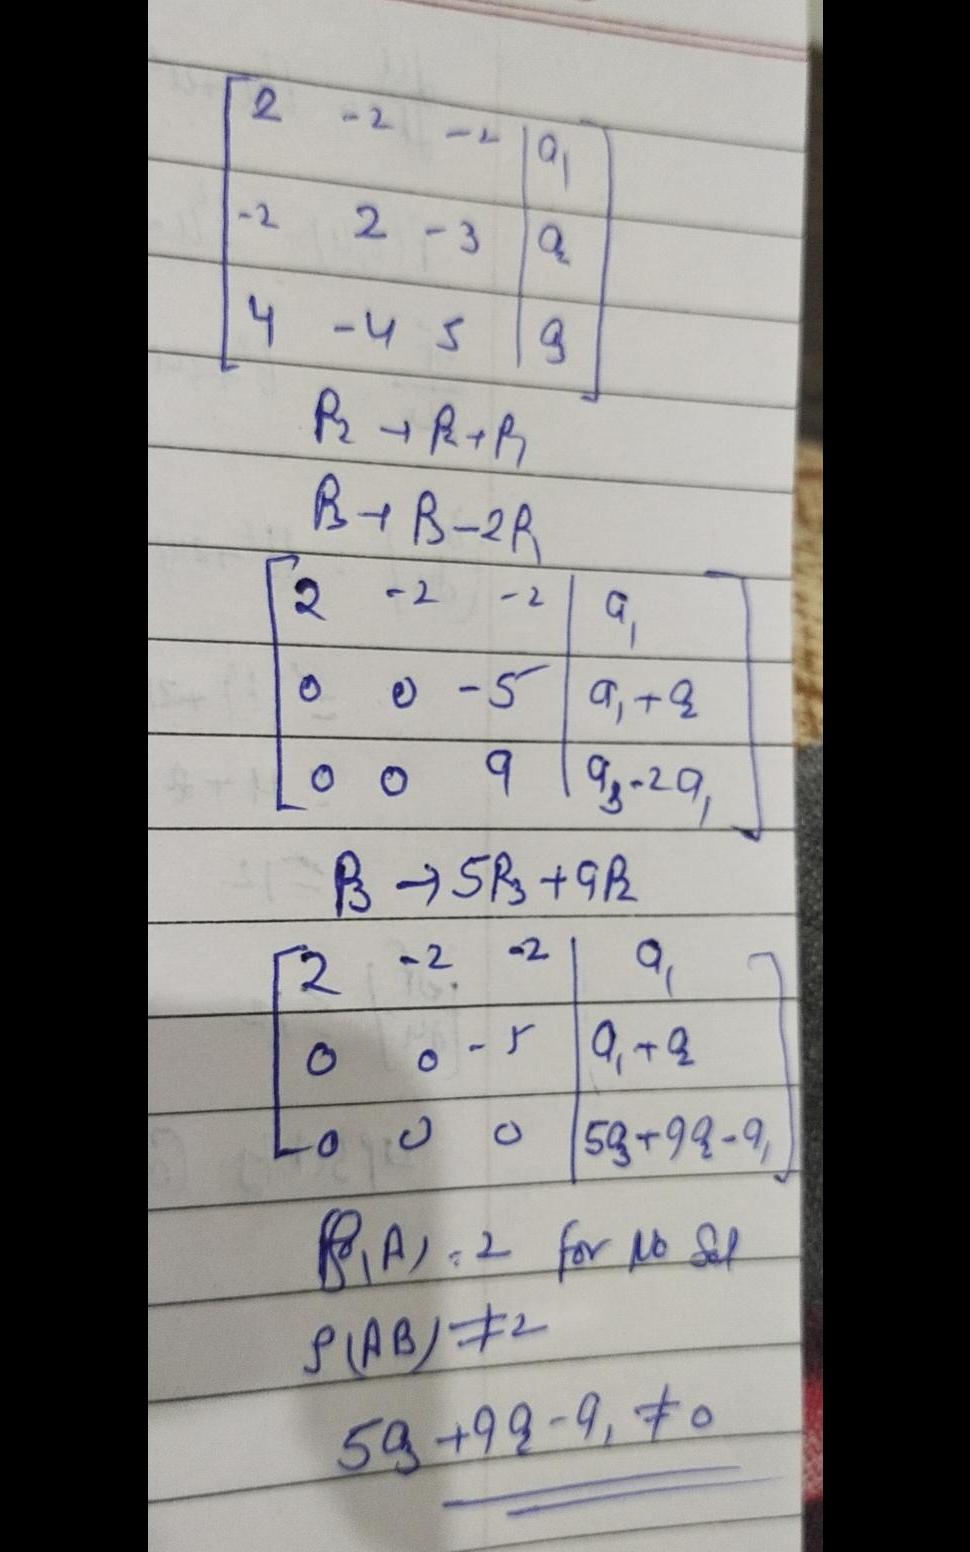 2 -2 -2 | a₁
-2 2 -3 | a₂
4 -4 5 | a₃
R₂ → R₂ + R₁
R₃ → R₃ - 2R₁
2 -2 -2 | a₁
0 0 -5 | a₁ + a₂
0 0 9 | a₃ - 2a₁
R₃ → 5R₃ + 9R₂
2 -2 -2 | a₁
0 0 -5 | a₁ + a₂
0 0 0 | 5a₃ + 9a₂ - a₁
ρ(A) = 2 for No Sol
ρ(AB) ≠ 2
5a₃ + 9a₂ - a₁ ≠ 0